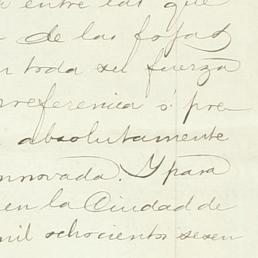 entre las que
de las fojas
toda su fuerza
preferencia ó pre
absolutamente
innovada. Y para
en la Ciudad de
mil ochocientos sesen